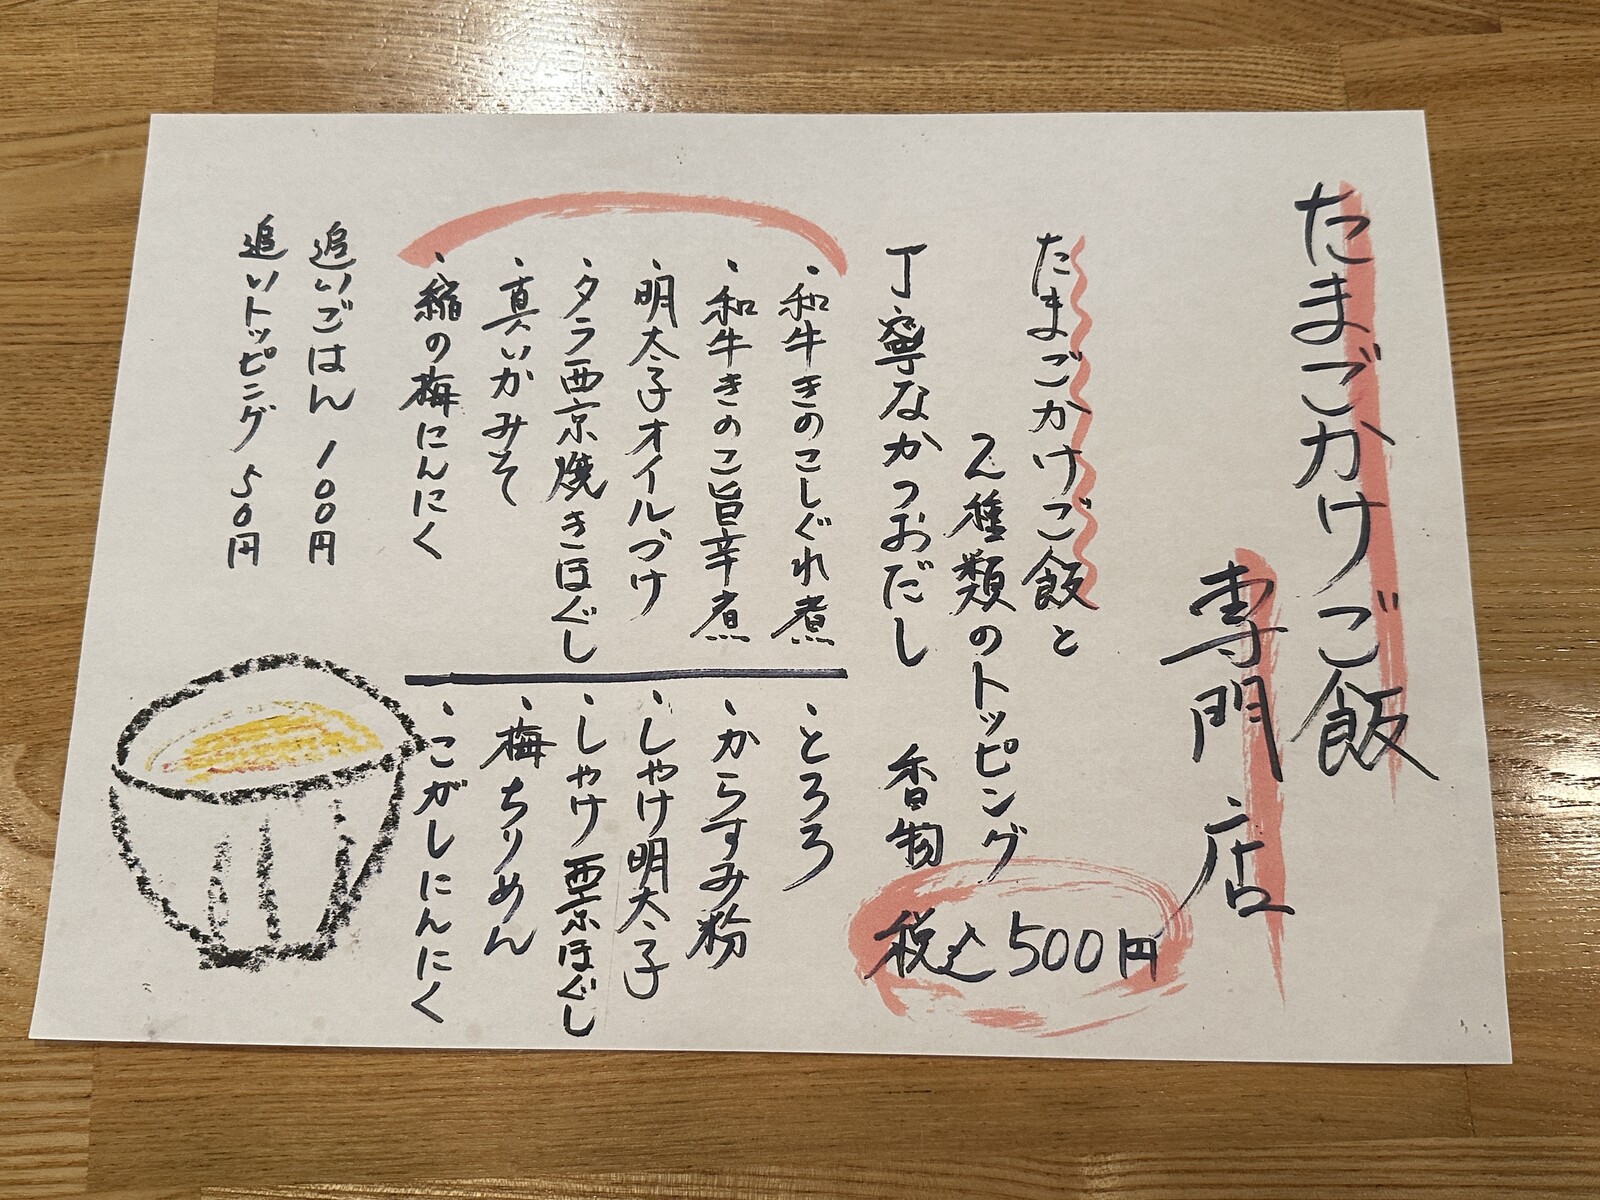 たまごかけご飯
専門店
たまごかけご飯と
2種類のトッピング
丁寧なかつおだし 香物
税込500円
・和牛きのこしぐれ煮
・和牛きのこ旨辛煮
・明太子オイルづけ
・タラ西京焼きほぐし
・真いかみそ
・の梅にんにく
・とろろ
・からすみ粉
・しゃけ明太子
・しゃけ西京ほぐし
・梅ちりめん
・こがしにんにく
追いごはん 100円
追いトッピング 50円